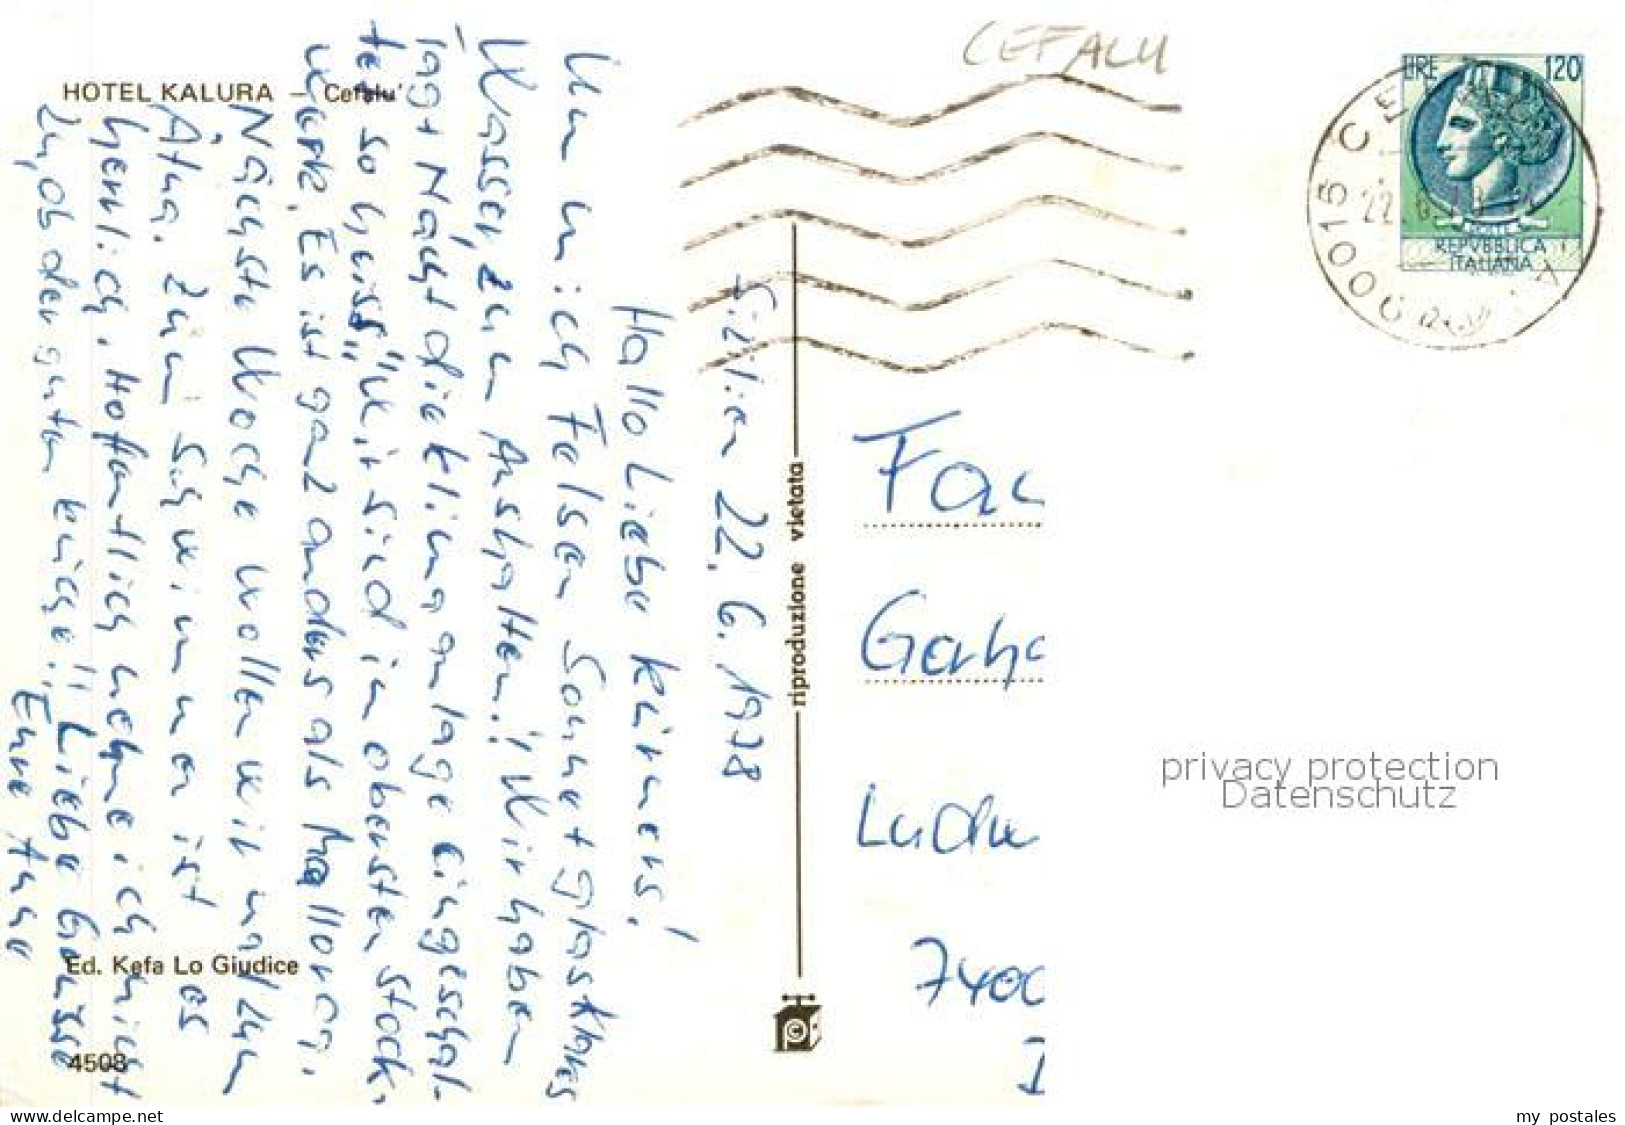 HOTEL KALURA – Cefalu'
CEFALU
LIRE 120
POSTE
REPVBBLICA
ITALIANA
90015 CEFALU
22.6.78
Sizilien 22.6.1978
Hallo Liebe Körners!
Um mich Felsen Sonne + glasklares
Wasser, zum Aushalten!! Wir haben
Tag + Nacht die Klimaanlage eingeschal-
tet so heiss" Wir sind im obersten Stock-
werk. Es ist ganz anders als Mallorca.
Nächste Woche wollen wir mal zum
Ätna. Zum Schwimmen ist es
herrlich. Hoffentlich nehme ich nicht
zu, ob der guten Küche!! Liebe Grüsse
Eure Anne
riproduzione vietata
Fa
Ga
Lud
740
Ed. Kefa Lo Giudice
4508
privacy protection
Datenschutz
www.delcampe.net
my_postales